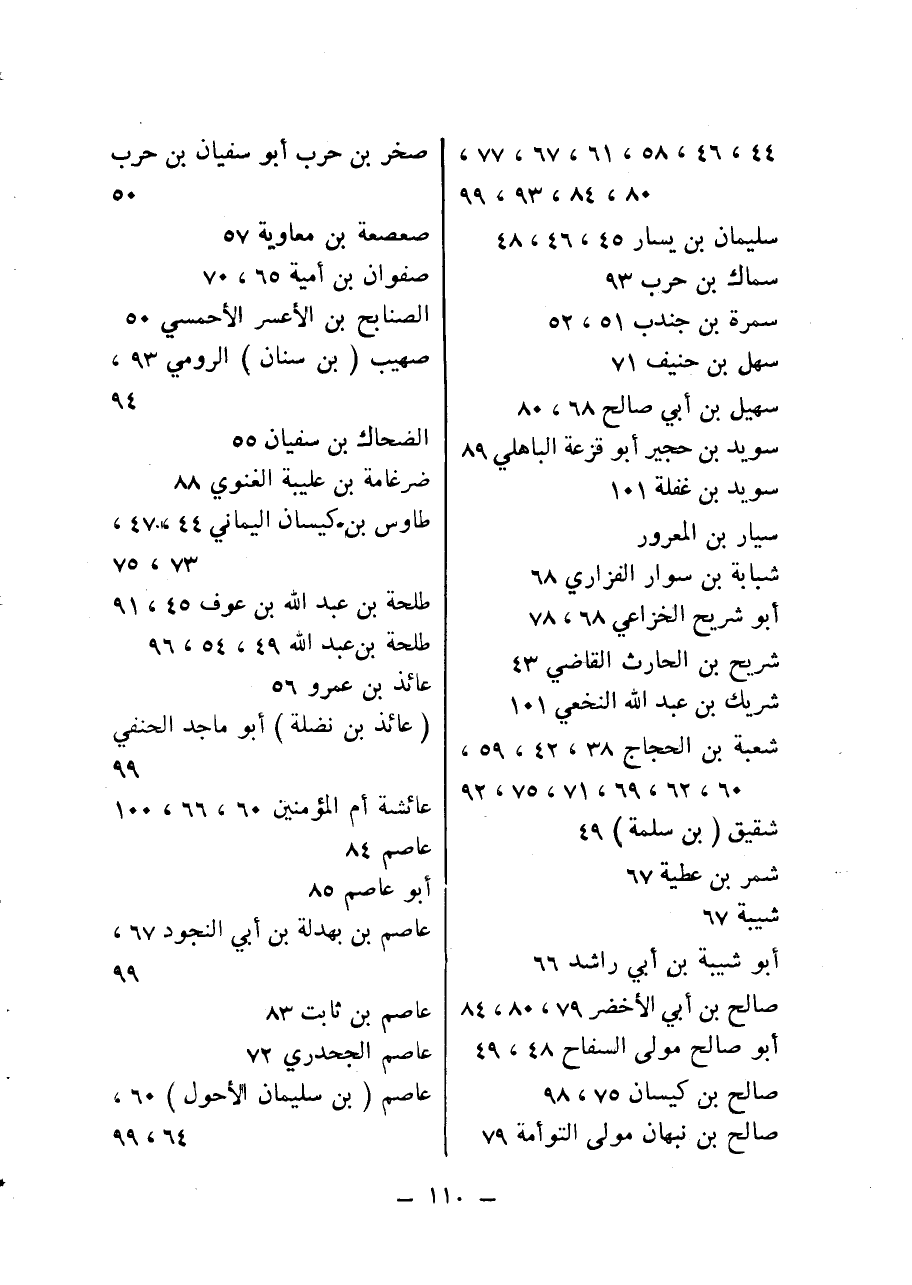 ٤٤ ، ٤٦ ، ٥٨ ، ٦١ ، ٦٧ ، ٧٧ ،
٨٠ ، ٨٤ ، ٩٣ ، ٩٩
سليمان بن يسار ٤٥ ، ٤٦ ، ٤٨
سماك بن حرب ٩٣
سمرة بن جندب ٥١ ، ٥٢
سهل بن حنيف ٧١
سهيل بن أبي صالح ٦٨ ، ٨٠
سويد بن حجير أبو قزعة الباهلي ٨٩
سويد بن غفلة ١٠١
سيار بن المعرور
شبابة بن سوار الفزاري ٦٨
أبو شريح الخزاعي ٦٨ ، ٧٨
شريح بن الحارث القاضي ٤٣
شريك بن عبد الله النخعي ١٠١
شعبة بن الحجاج ٣٨ ، ٤٢ ، ٥٩ ،
٦٠ ، ٦٢ ، ٦٩ ، ٧١ ، ٧٥ ، ٩٢
شقيق ( بن سلمة ) ٤٩
شمر بن عطية ٦٧
شيبة ٦٧
أبو شيبة بن أبي راشد ٦٦
صالح بن أبي الأخضر ٧٩ ، ٨٠ ، ٨٤
أبو صالح مولى السفاح ٤٨ ، ٤٩
صالح بن كيسان ٧٥ ، ٩٨
صالح بن نبهان مولى التوأمة ٧٩
صخر بن حرب أبو سفيان بن حرب
٥٠
صعصعة بن معاوية ٥٧
صفوان بن أمية ٦٥ ، ٧٠
الصنابح بن الأعسر الأحمسي ٥٠
صهيب ( بن سنان ) الرومي ٩٣ ،
٩٤
الضحاك بن سفيان ٥٥
ضرغامة بن عليبة الغنوي ٨٨
طاوس بن كيسان اليماني ٤٤ ، ٤٧ ،
٧٣ ، ٧٥
طلحة بن عبد الله بن عوف ٤٥ ، ٩١
طلحة بن عبد الله ٤٩ ، ٥٤ ، ٩٦
عائذ بن عمرو ٥٦
( عائذ بن نضلة ) أبو ماجد الحنفي
٩٩
عائشة أم المؤمنين ٦٠ ، ٦٦ ، ١٠٠
عاصم ٨٤
أبو عاصم ٨٥
عاصم بن بهدلة بن أبي النجود ٦٧ ،
٩٩
عاصم بن ثابت ٨٣
عاصم الجحدري ٧٢
عاصم ( بن سليمان الأحول ) ٦٠ ،
٦٤ ، ٩٩
— ١١٠ —